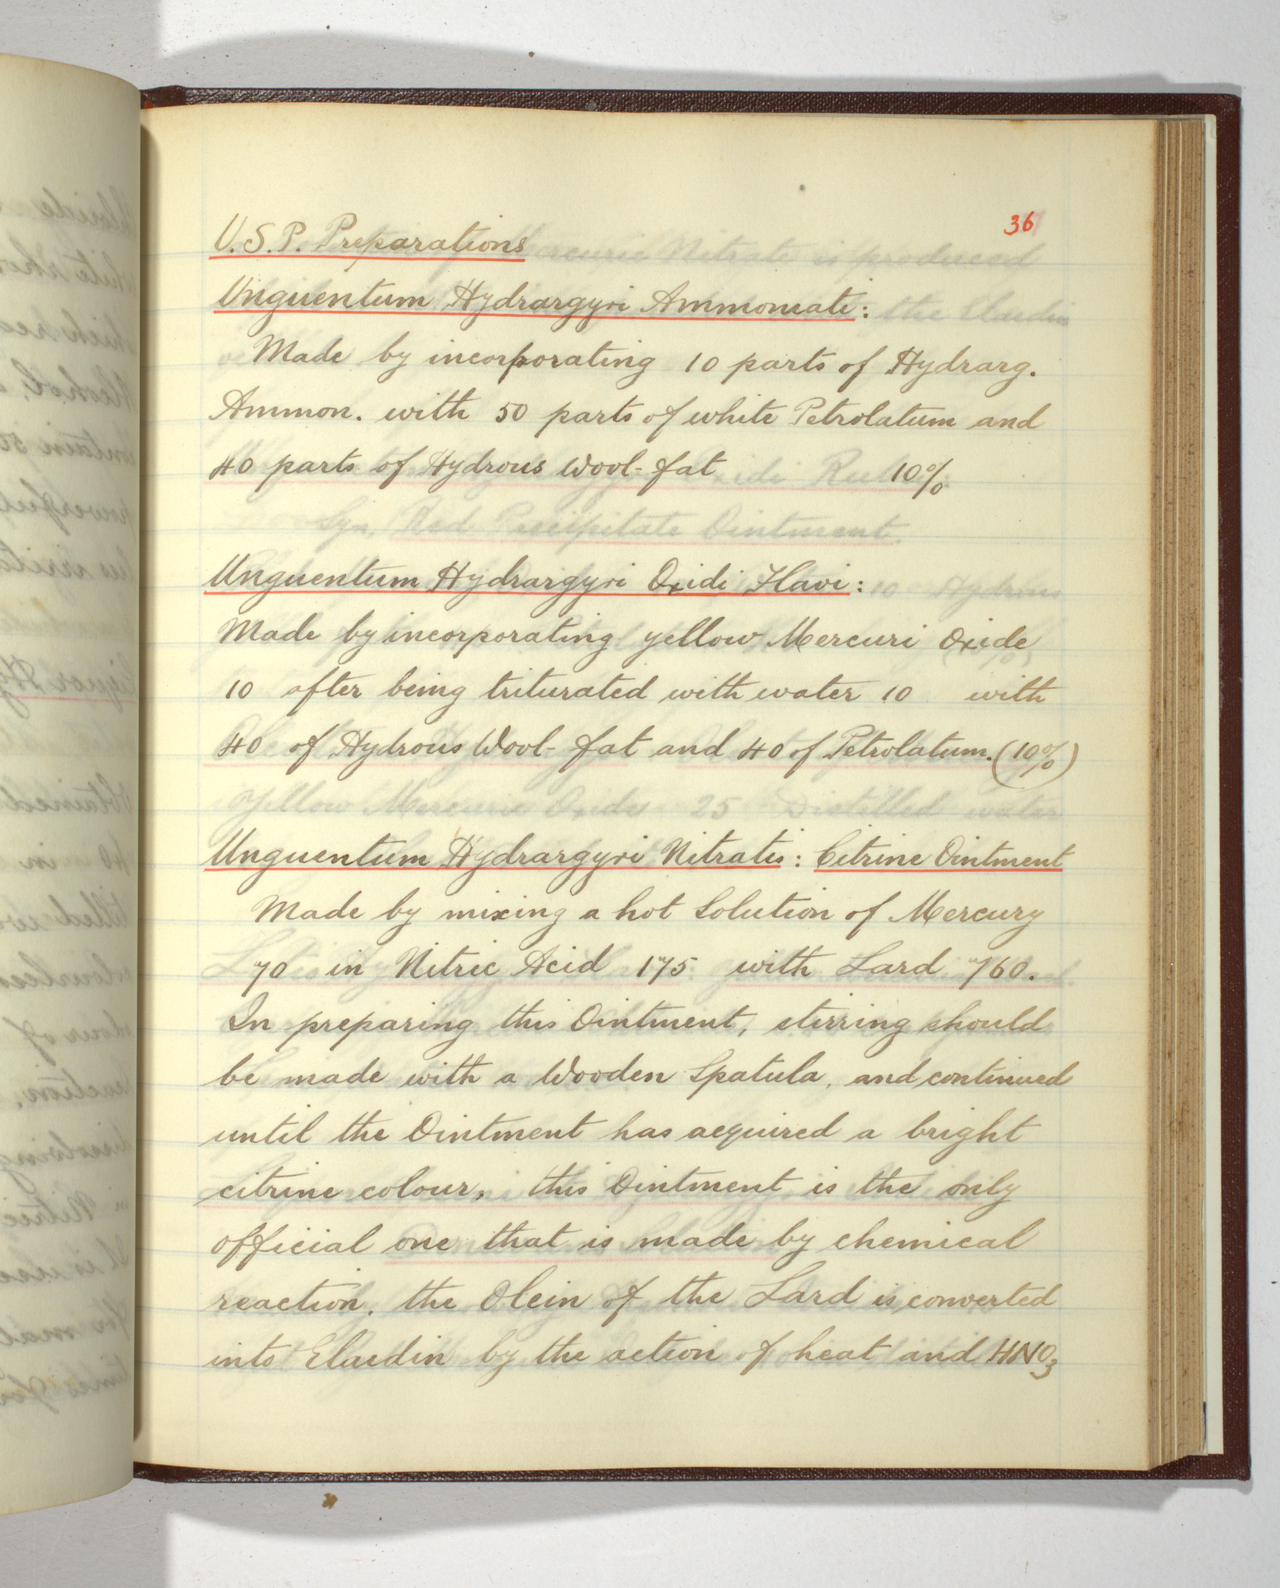 36
U.S.P. Preparations
Unguentum Hydrargyri Ammoniati:
Made by incorporating 10 parts of Hydrarg.
Ammon. with 50 parts of white Petrolatum and
40 parts of Hydrous Wool-fat 10%
Unguentum Hydrargyri Oxidi Flavi:
Made by incorporating yellow Mercuri Oxide
10 after being triturated with water 10 with
40 of Hydrous Wool-fat and 40 of Petrolatum. (10%)
Unguentum Hydrargyri Nitratis: Citrine Ointment
Made by mixing a hot Solution of Mercury
70 in Nitric Acid 175 with Lard 760.
In preparing this Ointment, stirring should
be made with a Wooden Spatula, and continued
until the Ointment has acquired a bright
citrine colour, this Ointment is the only
official one that is made by chemical
reaction. the Olein of the Lard is converted
into Elaedin by the action of heat and HNO3